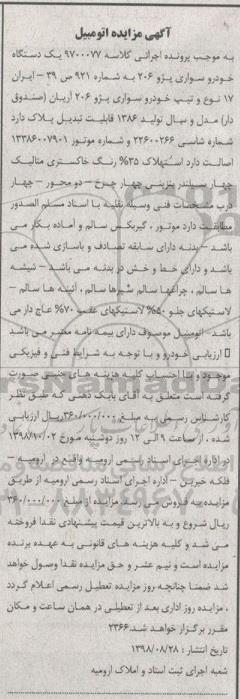 آگهی مزایده اتومبیل
به موجب پرونده اجرائی کلاسه ۹۷۰۰۰۷۷ یک دستگاه
خودرو سواری پژو ۲۰۶ به شماره ۹۲۱ ص ۳۹ - ایران
۱۷ نوع و تیپ خودرو سواری پژو ۲۰۶ آریان (صندوق
دار) مدل و سال تولید ۱۳۸۶ قابلیت تبدیل پلاک دارد
شماره شاسی ۲۳۶۰۰۲۶۶ و شماره موتور ۱۳۳۸۶۰۰۷۹۰۱
اصالت دارد استهلاک ۳۵% رنگ خاکستری متالیک
چهار سیلندر بنزینی چهار چرخ - دو محور - چهار
درب مشخصات فنی وسیله نقلیه با اسناد مسلم الصدور
مطابقت دارد موتور ، گیربکس سالم و آماده بکار می
باشد - بدنه دارای سابقه تصادف و بازسازی شده می
باشد و دارای خط و خش در بدنه می باشد - شیشه
ها سالم ، چراغها سالم سپرها سالم ، آئینه ها سالم -
لاستیکهای جلو ۵۰% لاستیکهای عقب ۷۰% عاج دار می
باشد . اتومبیل موصوف دارای بیمه نامه معتبر می باشد
ارزیابی خودرو و با توجه به شرایط فنی و فیزیکی
موجود و با احتساب کلیه هزینه های جنبی صورت
گرفته است متعلق به آقای بابک ذهبی که طبق نظر
کارشناس رسمی به مبلغ ۳۶۰/۰۰۰/۰۰۰ ریال ارزیابی
شده ، از ساعت ۹ الی ۱۲ روز دوشنبه مورخ ۱۳۹۸/۱۰/۰۲
در اداره اجرای اسناد رسمی ارومیه واقع در ارومیه -
فلکه خیرین - اداره اجرای اسناد رسمی ارومیه از طریق
مزایده به فروش می رسد مزایده از مبلغ ۳۶۰/۰۰۰/۰۰۰
ریال شروع و به بالاترین قیمت پیشنهادی نقدا فروخته
می شد و کلیه هزینه های قانونی به عهده برنده
مزایده است و نیم عشر و حق مزایده نقدا وصول خواهد
شد ضمنا چنانچه روز مزایده تعطیل رسمی اعلام گردد
، مزایده روز اداری بعد از تعطیلی در همان ساعت و مکان
مقرر برگزار خواهد شد.۲۳۶۶
تاریخ انتشار : ۱۳۹۸/۰۸/۲۸
شعبه اجرای ثبت اسناد و املاک ارومیه